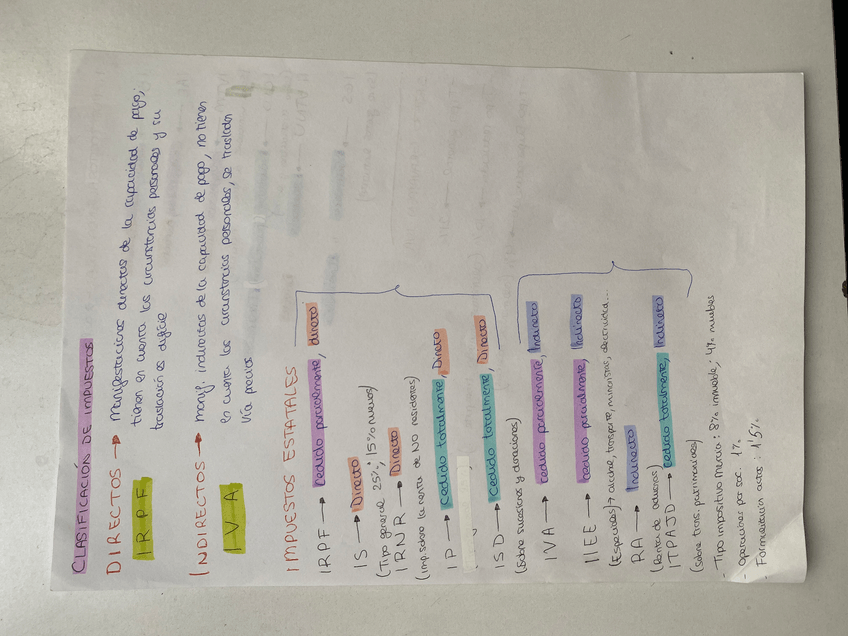 CLASIFICACIÓN DE IMPUESTOS
DIRECTOS → manifestaciones directas de la capacidad de pago,
IRPF tienen en cuenta las circunstancias personales y su
traslación es difícil
INDIRECTOS → manif. indirectas de la capacidad de pago, no tienen
IVA en cuenta las circunstancias personales, se trasladan
vía precios
IMPUESTOS ESTATALES
IRPF → cedido parcialmente, directo
IS → Directo
(Tipo general 25%; 15% nuevos)
IRNR → Directo
(imp. sobre la renta de NO residentes)
IP → Cedido totalmente, Directo
ISD → Cedido totalmente, Directo
(sobre sucesiones y donaciones)
IVA → cedido parcialmente, Indirecto
IIEE → cedido parcialmente, Indirecto
(Especiales) → alcohol, trasporte, minoristas, electricidad...
RA → Indirecto
(Renta de aduanas)
ITPAJD → cedido totalmente, Indirecto
(sobre trans. patrimoniales)
- Tipo impositivo Murcia: 8% inmueble; 4% muebles
- operaciones por soc. 1%
- Formalización actos: 1'5%